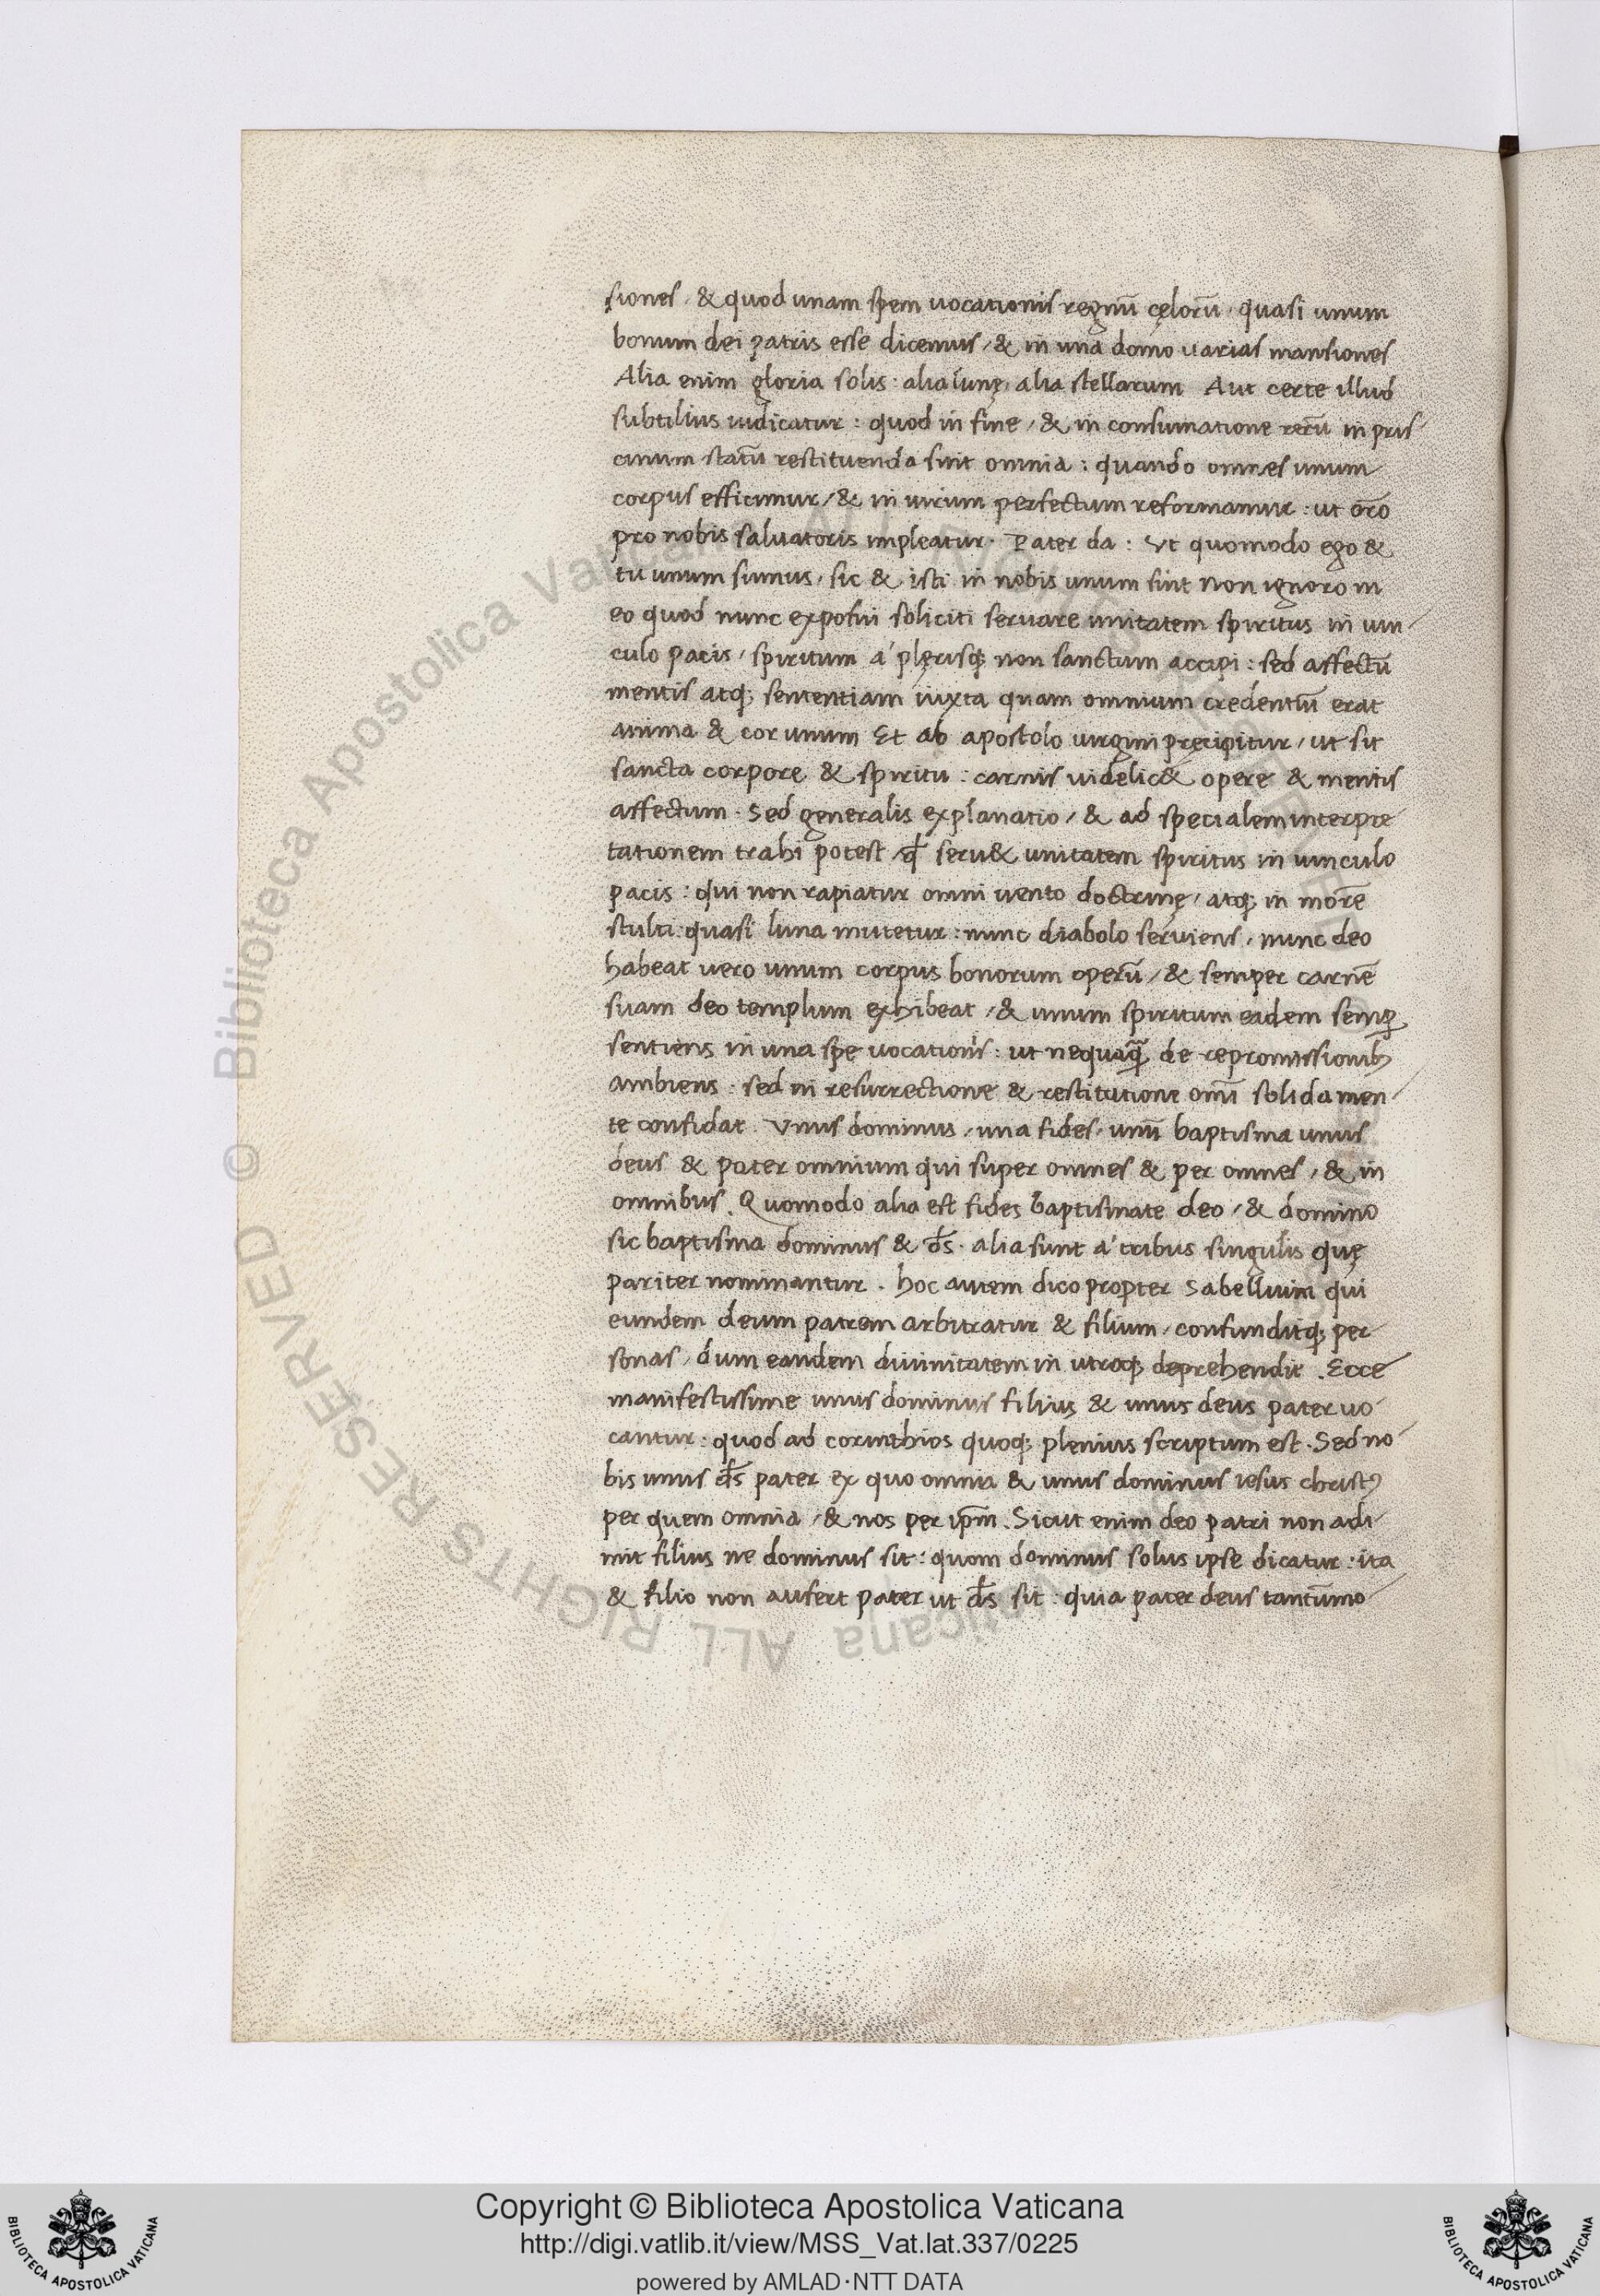 siones, & quod unam spem uocationis regnū cęlorū, quasi unum
bonum dei patris esse dicemus, & in una domo uarias mansiones
Alia enim gloria solis: alia lunę, alia stellarum Aut certe illud
subtilius iudicatur: quod in fine, & in consumatione rerū in pris
cinum statū restituenda sint omnia: quando omnes unum
corpus efficimur, & in uirum perfectum reformamur: ut orō
pro nobis saluatoris impleatur. Pater da: Vt quomodo ego &
tu unum sumus, sic & isti in nobis unum sint Non ignoro in
eo quod nunc exposui soliciti seruare unitatem spiritus in uin-
culo pacis, spiritum á plęrisq; non sanctum accipi: sed affectū
mentis atq; sententiam iuxta quam omnium credentiū erat
anima & cor unum Et ab apostolo uirgini pręcipitur, ut sit
sancta corpore & spiritu: carnis uidelic& opere & mentis
affectum. Sed generalis explanatio, & ad specialem interpre-
tationem trahi potest, ꝙ seru& unitatem spiritus in uinculo
pacis: qui non rapiatur omni uento doctrinę, atq; in morē
stulti quasi luna mutetur: nunc diabolo seruiens, nunc deo
habeat uero unum corpus bonorum operū, & semper carnē
suam deo templum exhibeat, & unum spiritum eadem semꝑ
sentiens in una spe uocationis: ut nequaꝗ̄ de repromissionib;
ambiens. sed in resurrectione & restitutione omī solida men-
te confidat. Vnus dominus, una fides, unū baptisma unus
deus & pater omnium qui super omnes & per omnes, & in
omnibus. Quomodo alia est fides baptismate deo, & domino
sic baptisma dominus & ds̄. alia sunt á tribus singulis quę
pariter nominantur. hoc autem dico propter Sabellium qui
eundem deum patrem arbitratur & filium, confunditq; per-
sonas, dum eandem diuinitatem in utroq; deprehendit. Ecce
manifestissime unus dominus filius & unus deus pater uo-
cantur: quod ad corinthios quoq; plenius scriptum est. Sed no-
bis unus ds̄ pater ex quo omnia & unus dominus iesus christꝰ
per quem omnia, & nos per ip̄m. Sicut enim deo patri non adi-
mit filius ne dominus sit: quom dominus solus ipse dicatur: ita
& filio non aufert pater ut ds̄ sit: quia pater deus tantūmo-
© Biblioteca Apostolica Vaticana ALL RIGHTS RESERVED
Copyright © Biblioteca Apostolica Vaticana
http://digi.vatlib.it/view/MSS_Vat.lat.337/0225
powered by AMLAD·NTT DATA
BIBLIOTECA APOSTOLICA VATICANA
BIBLIOTECA APOSTOLICA VATICANA